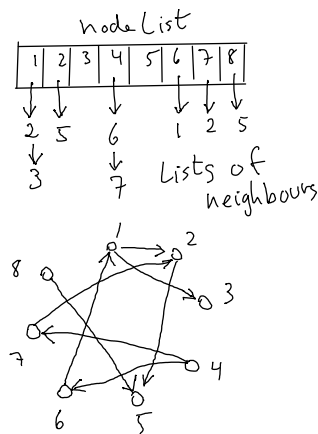 nodeList
1 2 3 4 5 6 7 8
2 5 6 1 2 5
3 7
Lists of
neighbours
1
2
8
3
7
4
6
5